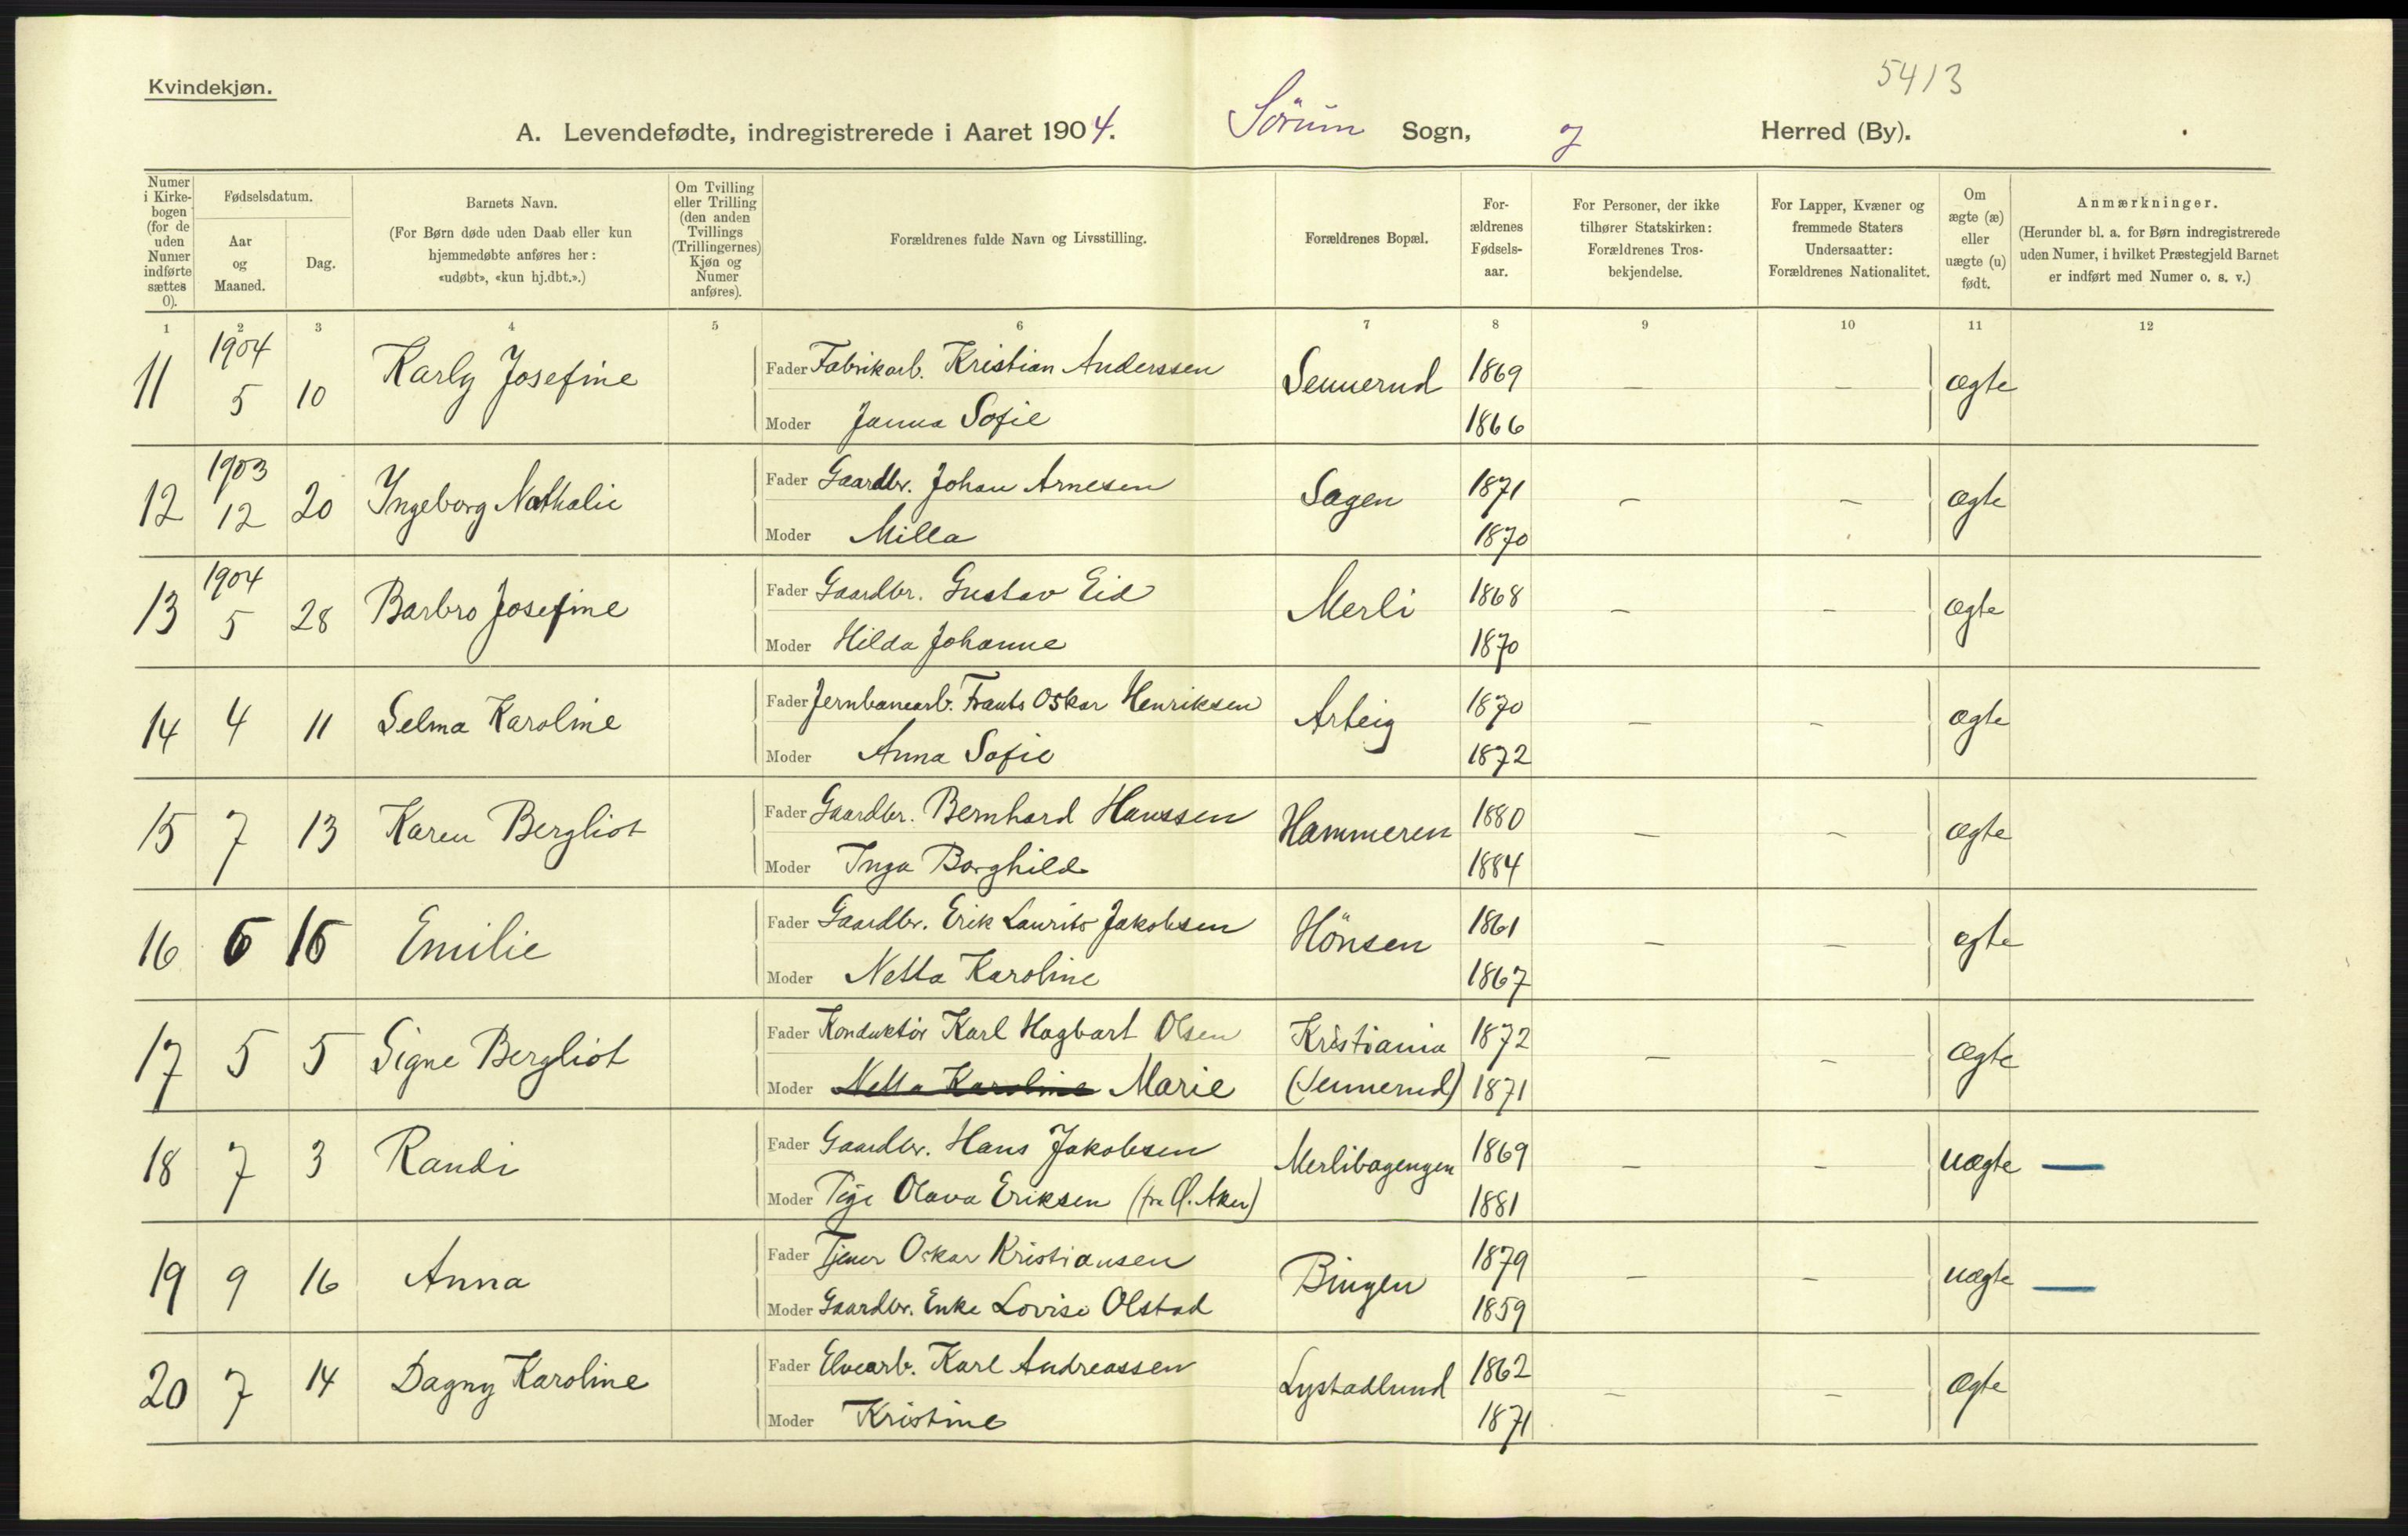 Kvindekjøn.
5413
A. Levendefødte, indregistrerede i Aaret 1904. Sörum Sogn, og Herred (By).
Numer i Kirkebogen (for de uden Numer indførte sættes 0).
Fødselsdatum.
Aar og Maaned.
Dag.
Barnets Navn.
(For Børn døde uden Daab eller kun hjemmedøbte anføres her: «udøbt», «kun hj.dbt.».)
Om Tvilling eller Trilling (den anden Tvillings (Trillingernes) Kjøn og Numer anføres).
Forældrenes fulde Navn og Livsstilling.
Forældrenes Bopæl.
Forældrenes Fødselsaar.
For Personer, der ikke tilhører Statskirken: Forældrenes Trosbekjendelse.
For Lapper, Kvæner og fremmede Staters Undersaatter: Forældrenes Nationalitet.
Om ægte (æ) eller uægte (u) født.
Anmærkninger.
(Herunder bl. a. for Børn indregistrerede uden Numer, i hvilket Præstegjeld Barnet er indført med Numer o. s. v.)
1 2 3 4 5 6 7 8 9 10 11 12
11 1904 5 10 Karly Josefine Fader Fabrikarb. Kristian Anderssen Sennerud 1869 — — ægte
Moder Janna Sofie 1866
12 1903 12 20 Ingeborg Nathalie Fader Gaardbr. Johan Arnesen Sagen 1871 — — ægte
Moder Milla 1870
13 1904 5 28 Barbro Josefine Fader Gaardbr. Gustav Eid Merli 1868 — — ægte
Moder Hilda Johanne 1870
14 4 11 Selma Karoline Fader Jernbanearb. Frants Oskar Henriksen Arteig 1870 — — ægte
Moder Anna Sofie 1872
15 7 13 Karen Bergliot Fader Gaardbr. Bernhard Hanssen Hammeren 1880 — — ægte
Moder Inga Borghild 1884
16 6 15 Emilie Fader Gaardbr. Erik Laurits Jakobsen Hönsen 1861 — — ægte
Moder Netta Karoline 1867
17 5 5 Signe Bergliot Fader Konduktör Karl Hagbart Olsen Kristiania 1872 — — ægte
Moder Netta Karoline Marie (Sennerud) 1871
18 7 3 Randi Fader Gaardbr. Hans Jakobsen Merlibagengen 1869 — — uægte —
Moder Pige Olava Eriksen (fra Ø. Aker) 1881
19 9 16 Anna Fader Tjener Oskar Kristiansen Bingen 1879 — — uægte —
Moder Gaardbr. Enke Lovise Olstad 1859
20 7 14 Dagny Karoline Fader Elvearb. Karl Andreassen Lystadlund 1862 — — ægte
Moder Kristine 1871